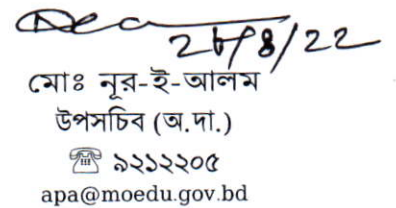 মোঃ নূর-ই-আলম
উপসচিব (অ.দা.)
☏ ৯২১২২০৫
apa@moedu.gov.bd